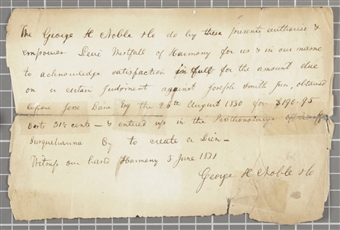 We George H Noble & Co do by these presents authorise &
empower Levi Westfall of Harmony for us & in our name
to acknowledge satisfaction in full for the amount due
on a certain judgment against Joseph Smith Jun, obtained
before Jesse Dain Esq the 28th August 1830 for $190-95
costs 31½ cents — & entered up in the Prothonotarys
Susquehanna Co to create a Lien —
Witness our hands Harmony 3 June 1831
George H Noble & Co